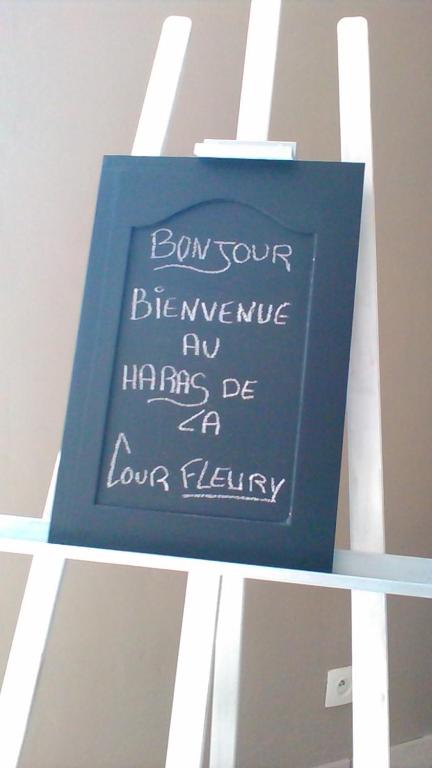 BONJOUR
BiENVENUE
AU
HARAS DE
LA
COUR FLEURY